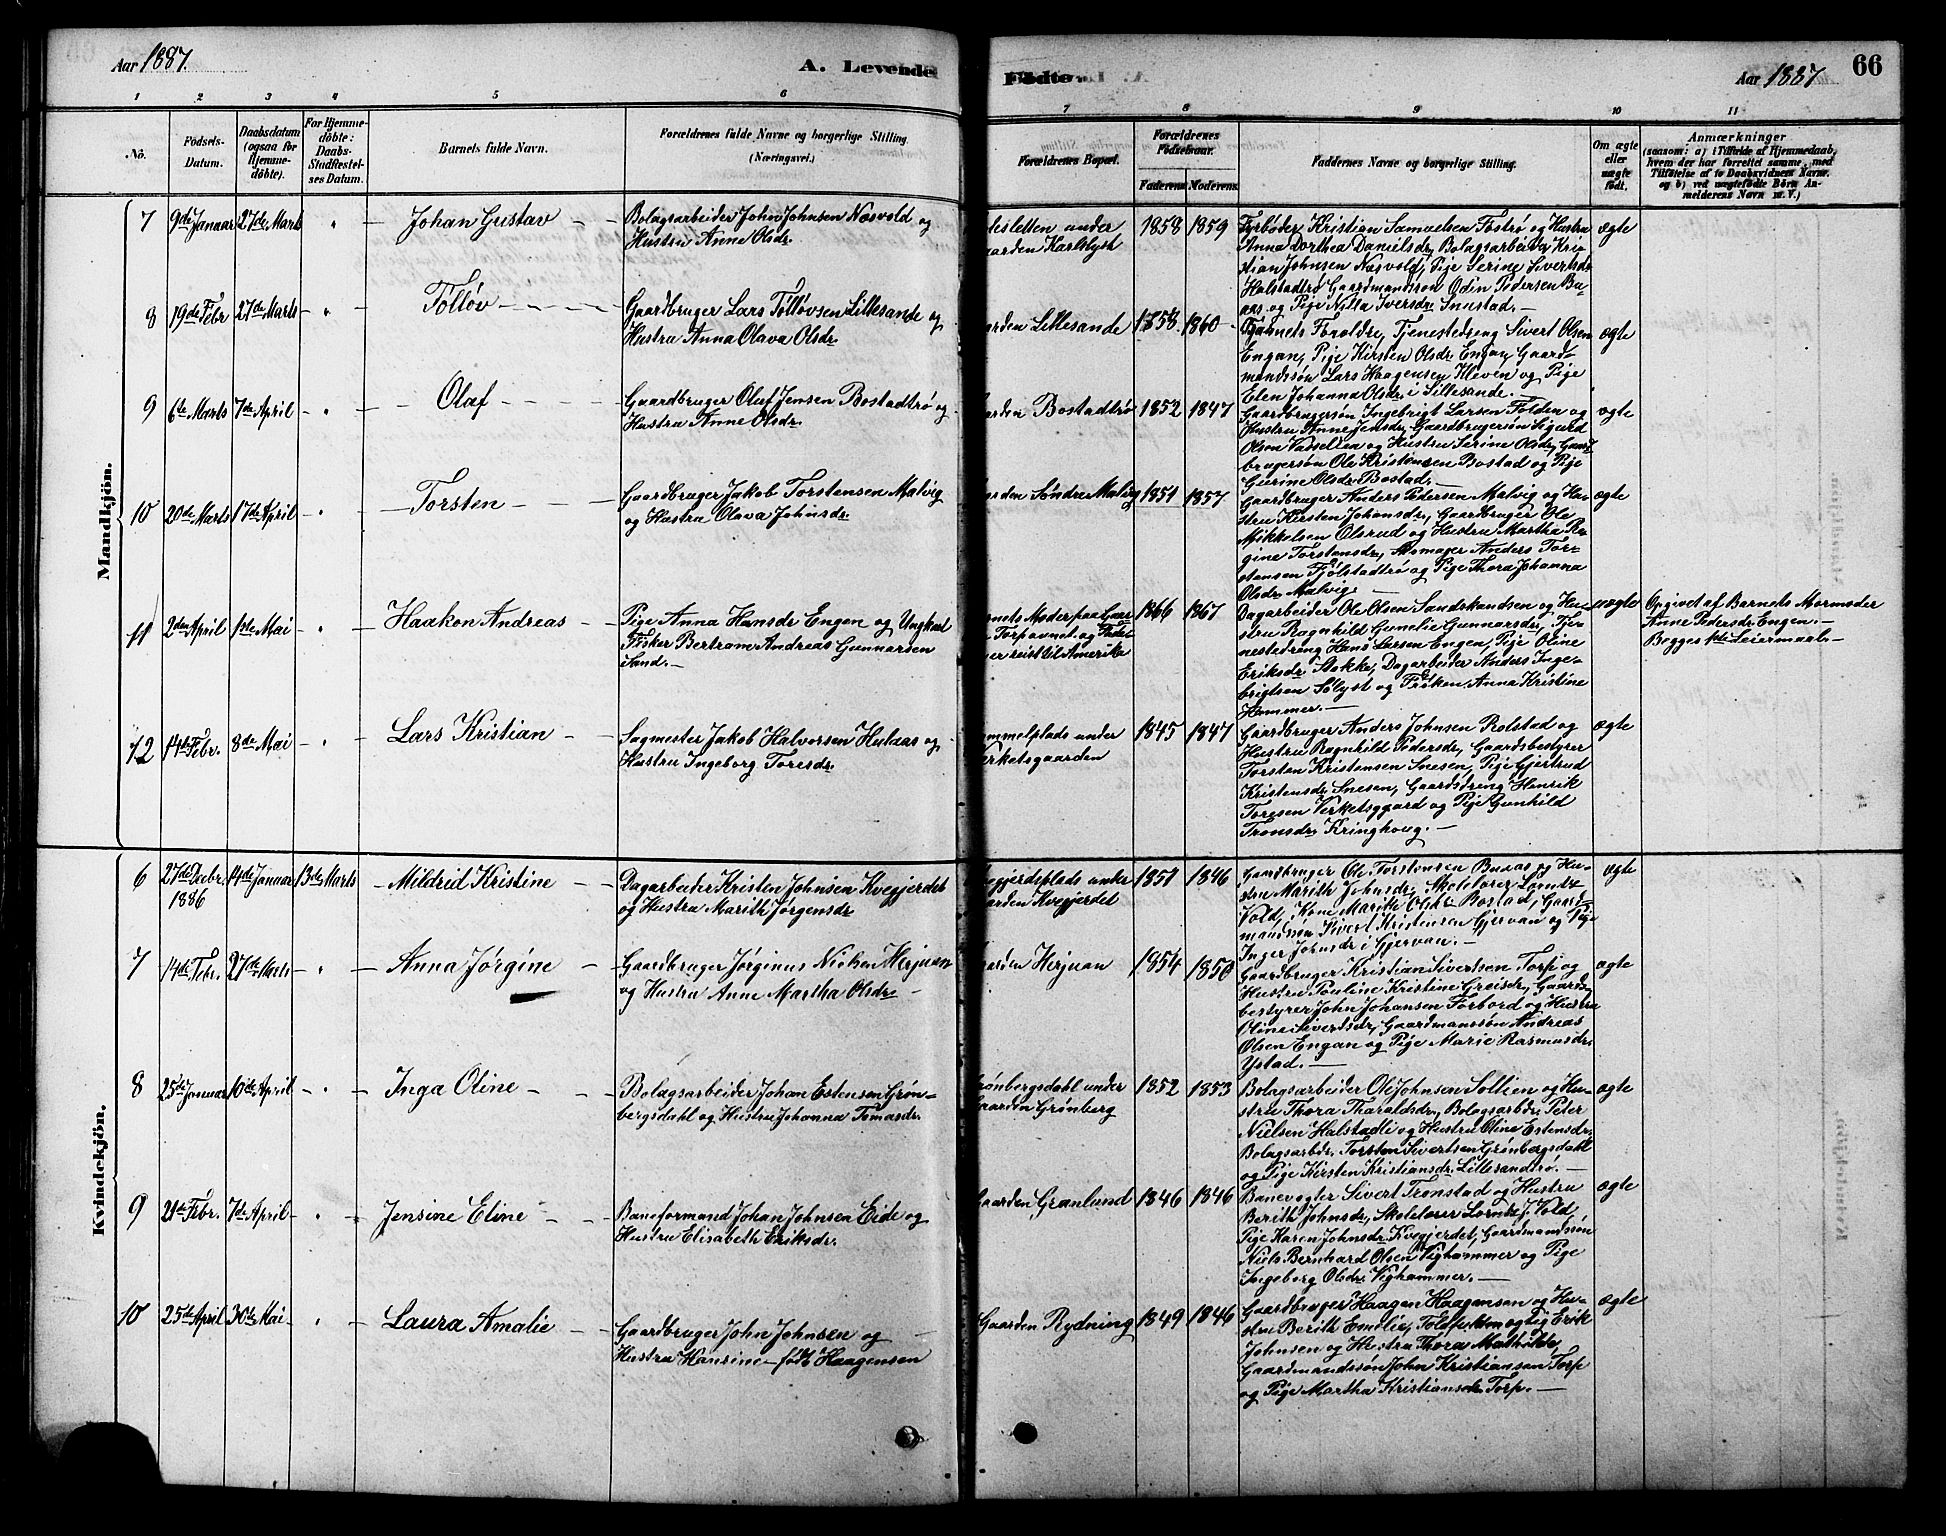 Aar 1887.
A. Levende
Fødte.
Aar 1887
66
1 2 3 4 5 6 7 8 9 10 11
No.
Fødsels-
Datum.
Daabsdatum
(ogsaa for
Hjemme-
døbte).
For Hjemme-
døbte:
Daabs-
Stadfæstel-
ses Datum.
Barnets fulde Navn.
Forældrenes fulde Navne og borgerlige Stilling.
(Næringsvei.)
Forældrenes Bopæl.
Forældrenes
Fødselsaar.
Faderens. Moderens.
Faddernes Navne og borgerlige Stilling.
Om ægte
eller
uægte
født.
Anmærkninger
(saasom: a) i Tilfælde af Hjemmedaab,
hvem der har forrettet samme, med
Tilføielse af to Daabsvidners Navne,
og b) ved uægtefødte Børn An-
melderens Navn m. V.)
Mandkjön.
7 9de Januar 27de Marts " Johan Gustav
Bolagsarbeider John Johnsen Næsvold og
Hustru Anne Olsdr.
desletten under
aarden Karlslyst
1858 1859
Fyrbøder Kristian Samuelsen Tostrø og Hustru
Anna Dorthea Danielsdr., Bolagsarbeider Kri-
stian Johnsen Næsvold, Pige Serine Sivertsdr.
Halstadtrø Gaardmandssøn Odin Pedersen Bu-
aas og Pige Nilla Iversdr. Snustad.
ægte
8 19de Febr 27de Marts " Tølløv
Gaardbruger Lars Tølløvsen Lillesande og
Hustru Anna Olava Olsdr.
aarden Lillesande
1858. 1860
Barnets Forældre, Tjenestedreng Sivert Olsen
Engan, Pige Kirsten Olsdr. Engan, Gaard-
mandssøn Lars Haagensen Kleven og Pige
Elen Johanna Olsdr. i Lillesande.
ægte
9 6te Marts 7de April " Olaf
Gaardbruger Oluf Jensen Bostadtrø og
Hustru Anne Olsdr.
aarden Bostadtrø
1852 1847
Gaardbrugersøn Ingebrigt Larsen Folden og
Hustru Anne Jensdr., Gaardbrugersøn Sigurd
Olsen Vasselien og Hustru Serine Olsdr., Gaard-
brugersøn Ole Kristensen Bostad og Pige
Gurine Olsdr. Bostad.
ægte
10 20de Marts 17de April " Torsten
Gaardbruger Jakob Torstensen Malvig
og Hustru Olava Johnsdr.
aarden Søndre Malvig
1851 1857
Gaardbruger Anders Pedersen Malvig og Hu-
stru Kirsten Johansdr., Gaardbruger Ole
Mikkelsen Olsrud og Hustru Martha Re-
gine Torstensdr., Skomager Anders Tor-
stensen Fjølstadtrø og Pige Thora Johanna
Olsdr. Malvig.
ægte
11 2den April 1ste Mai " Haakon Andreas
Pige Anna Hansdr Engen og Ungkarl
Fisker Bertram Andreas Gunnarsen
Sand.
arnets Moder paa Gaar-
Torp avnet og Fader
er reist til Amerika
1866 1867
Dagarbeider Ole Olsen Sandskandsen og Hu-
stru Ragnhild Gurnelie Gunnarsdr., Tje-
nestedreng Hans Larsen Engen, Pige Oline
Eriksdr. Stokke, Dagarbeider Anders Inge-
brigtsen Sølyst og Frøken Anna Kristine
Hammer.
uægte
Opgivet af Barnets Mormoder
Anne Pedersdr. Engen.
Begges 1ste Leiermaal.
12 14de Febr. 8de Mai " Lars Kristian
Sagmester Jakob Halvorsen Hulaas og
Hustru Ingeborg Toresdr.
ommelplads under
erketsgaarden
1845 1847
Gaardbruger Anders Johnsen Rolstad og
Hustru Ragnhild Pedersdr., Gaardsbestyrer
Torsten Kristensen Snesen, Pige Gjertrud
Kristensdr. Snesen, Gaardsdreng Henrik
Toresen Verketsgaard og Pige Gunhild
Tronsdr. Kringhoug.
ægte
Kvindekjön.
6 27de Decbr. 1886 14de Januar 13de Marts Mildrid Kristine
Dagarbeider Kristen Johnsen Kvegjerdet
og Hustru Marith Jørgensdr
egjerdsplads under
aarden Kvegjerdet
1851 1846
Gaardbruger Ole Torstensen Buaas og Hu-
stru Marith Johnsdr., Skolelærer Lorntz
Vold, Kone Marith Olsdr. Bostad, Gaard-
mandssøn Sivert Kristensen Gjervan og Pige
Inger Johnsdr. i Gjervan.
ægte
7 14de Febr. 27de Marts " Anna Jørgine
Gaardbruger Jørginus Nielsen Herjuan
og Hustru Anne Martha Olsdr
aarden Herjuan
1854 1850
Gaardbruger Kristian Sivertsen Torp og
Hustru Pauline Kristine Greisdr., Gaards-
bestyrer John Johansen Forbord og Hustru
Oline Sivertsdr., Gaardmanssøn Andreas
Olsen Engan og Pige Marie Rasmusdr.
Ystad.
ægte
8 25de Januar 10de April " Inga Oline
Bolagsarbeider Johan Estensen Grøn-
bergsdahl og Hustru Johanna Tomasdr.
rønbergsdahl under
aarden Grønberg
1852 1853
Bolagsarbeider Ole Johnsen Sollien og Hu-
stru Thora Tharaldsdr., Bolagsarbdr. Peter
Nielsen Halstadli og Hustru Oline Estensdr.
Bolagsarbdr. Torsten Sivertsen Grønbergsdahl
og Pige Kirsten Kristiansdr. Lillesandtrø.
ægte
9 21de Febr. 7de April " Jensine Eline
Baneformand Johan Johnsen Eide og
Hustru Elisabeth Eriksdr.
aarden Granlund
1846 1846
Banevogter Sivert Tronstad og Hustru
Berith Johnsdr., Skolelærer Lorntz J. Vold,
Pige Karen Johnsdr. Kvegjerdet, Gaardmandssøn
Niels Bernhard Olsen Vighammer og Pige
Ingeborg Olsdr. Vighammer.
ægte
10 25de April 30de Mai " Laura Amalie
Gaardbruger John Johnsen og
Hustru Hansine født Haagensen
Gaarden Rydning
1849 1846
Gaardbruger Haagen Haagensen og Hu-
stru Berith Emelie, Toldfuldmægtig Erik
Johnsen og Hustru Thora Mathilde,
Gaardmandssøn John Kristiansen Torp
og Pige Martha Kristiansdr. Torp.
ægte